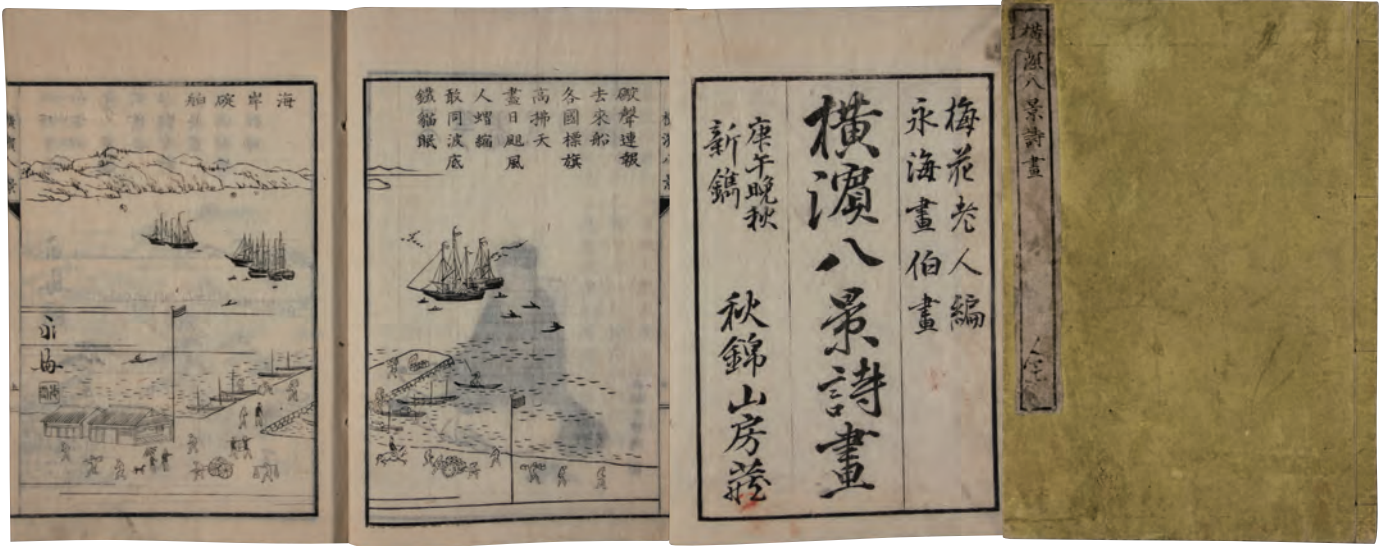 横濱八景詩畫
全
梅花老人編
永海畫伯畫
橫濱八景詩畫
庚午晩秋
新鐫
秋錦山房藏
礮聲連報
去來船
各國標旗
高拂天
盡日颶風
人蝟縮
敢同波底
鐵貓眠
海岸碇舶
永海